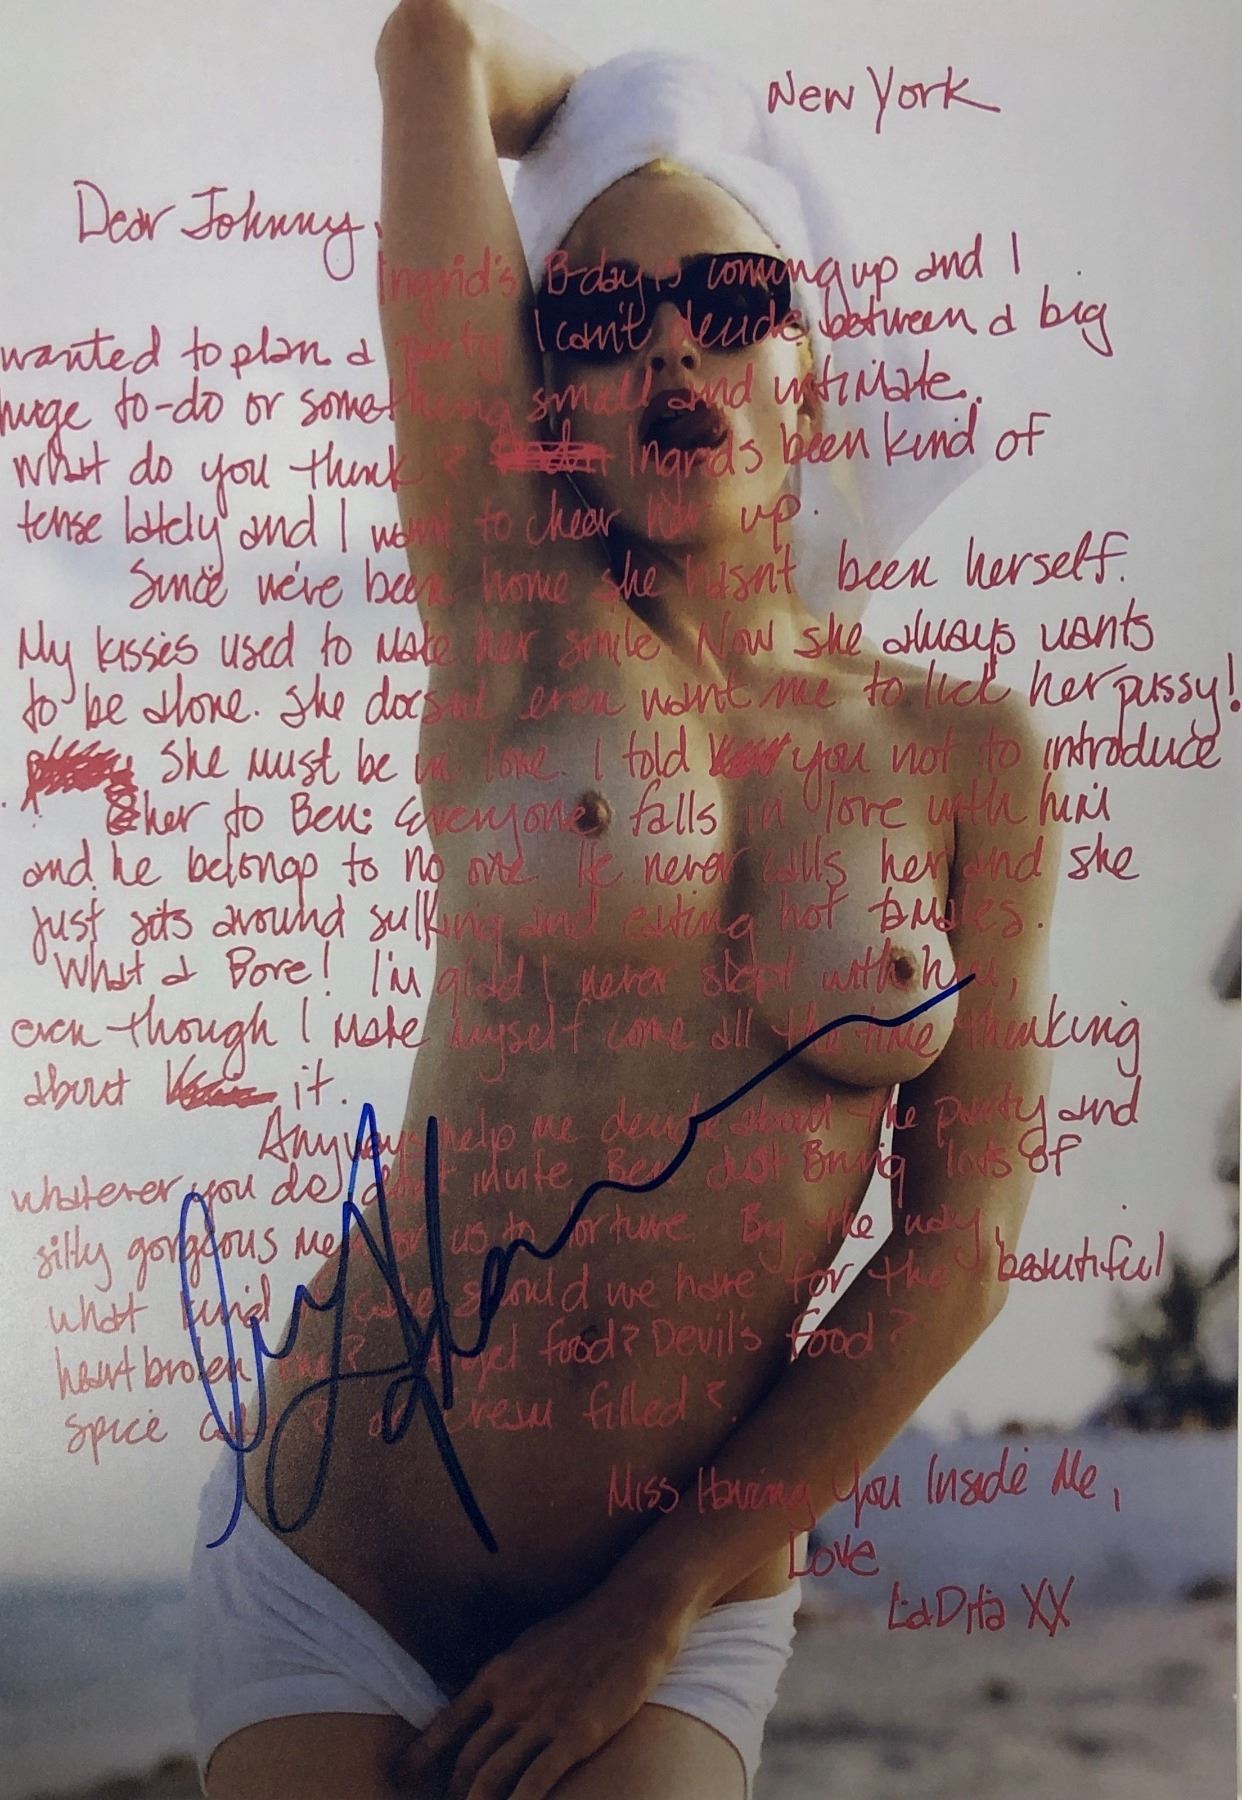 New York
Dear Johnny,
Ingrid's B-day is coming up and I
wanted to plan a party. I can't decide between a big
huge to-do or something small and intimate.
What do you think? Ingrids been kind of
tense lately and I want to cheer her up.
Since we've been home she hasn't been herself.
My kisses used to make her smile. Now she always wants
to be alone. She doesn't even want me to lick her pussy!
She must be in love. I told you not to introduce
her to Ben: Everyone falls in love with him
and he belongs to no one. He never calls her and she
just sits around sulking and eating hot tamales.
What a Bore! I'm glad I never slept with him,
even though I make myself come all the time thinking
about it.
Anyway, help me decide about the party and
whatever you do, don't invite Ben. Just Bring lots of
silly gorgeous men for us to torture. By the way,
what kind of cake should we have for the beautiful
heartbroken one? Angel food? Devil's food?
Spice cake? or Cream filled?
Miss Having You Inside Me,
Love
LaDita XX